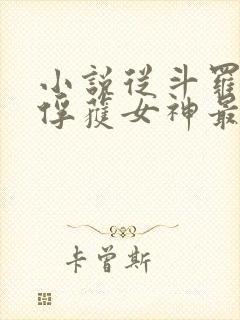 小說從斗羅
俘獲女神最
卡曾斯